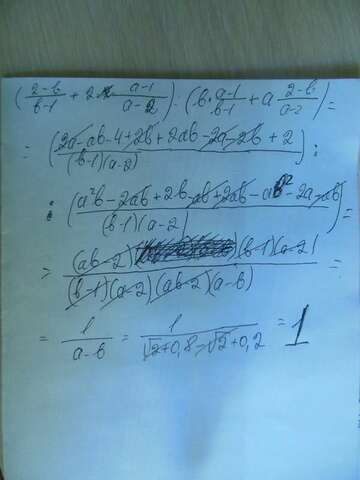 (2-b/b-1 + 2· a-1/a-2) : (b· a-1/b-1 + a 2-b/a-2) =
= (2a-ab-4+2b+2ab-2a-2b+2/(b-1)(a-2)) :
: (a²b-2ab+2b-ab+2ab-ab²-2a-ab/(b-1)(a-2)) =
= (ab-2)(b-1)(a-2)/(b-1)(a-2)(ab-2)(a-b) =
= 1/a-b = 1/√2+0,8-√2+0,2 = 1